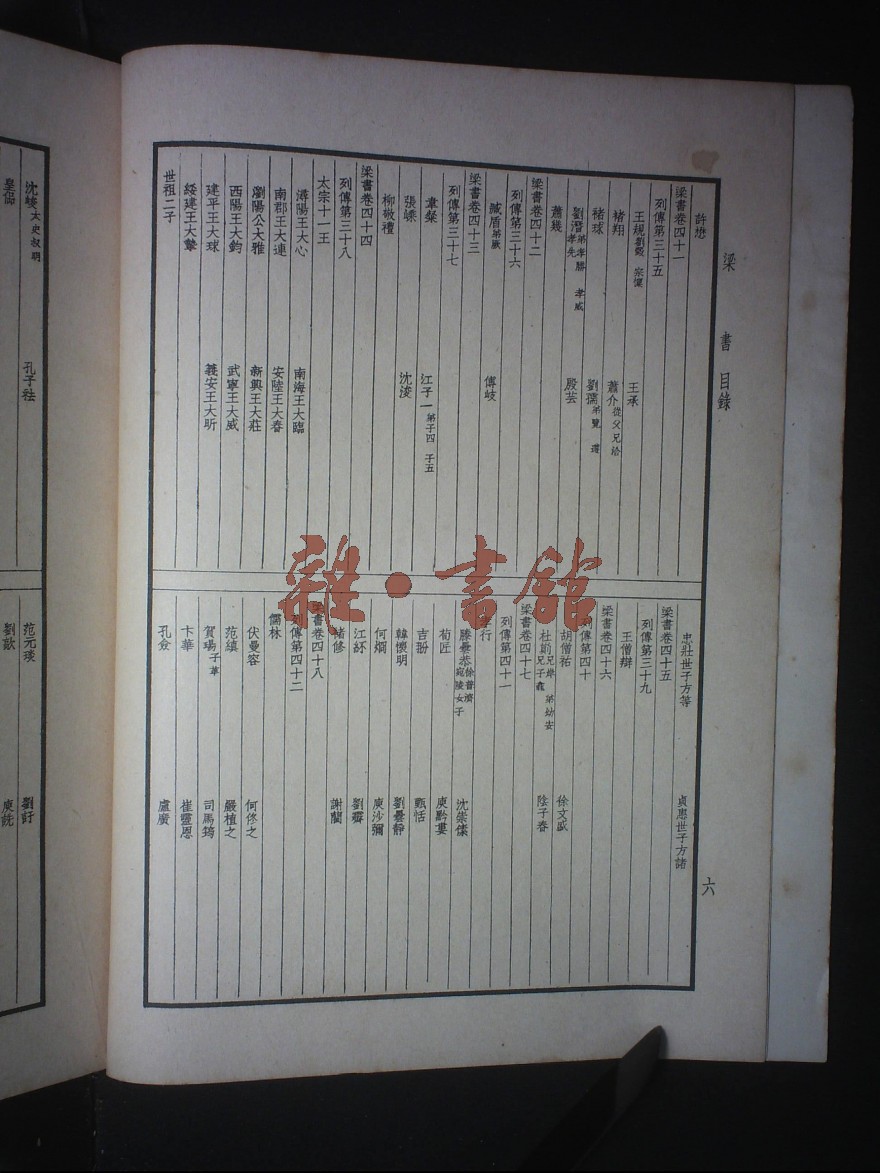 梁書目錄
六
許懋
梁書卷四十一
列傳第三十五
王規 劉瑴 宗懍
王承
褚翔
蕭介 從父兄洽
褚球
劉孺 弟覽 遵
劉潛 弟孝勝 孝威 孝先
殷芸
蕭幾
梁書卷四十二
列傳第三十六
臧盾 弟厥
傅岐
梁書卷四十三
列傳第三十七
韋粲
江子一 弟子四 子五
張嵊
沈浚
柳敬禮
梁書卷四十四
列傳第三十八
太宗十一王
潯陽王大心
南海王大臨
南郡王大連
安陸王大春
瀏陽公大雅
新興王大莊
西陽王大鈞
武寧王大威
建平王大球
義安王大昕
綏建王大摯
世祖二子
忠壯世子方等
貞惠世子方諸
梁書卷四十五
列傳第三十九
王僧辯
梁書卷四十六
列傳第四十
胡僧祐
徐文盛
杜崱 兄岸 弟幼安 兄子龕
陰子春
梁書卷四十七
列傳第四十一
孝行
滕曇恭 徐普濟 宛陵女子
沈崇傃
荀匠
庾黔婁
吉翂
甄恬
韓懷明
劉曇靜
何烱
庾沙彌
江紑
劉霽
褚修
謝藺
梁書卷四十八
列傳第四十二
儒林
伏曼容
何佟之
范縝
嚴植之
賀瑒 子革
司馬筠
卞華
崔靈恩
孔僉
盧廣
沈峻 太史叔明
孔子祛
皇侃
范元琰
劉訏
劉歊
庾詵
雜·書館